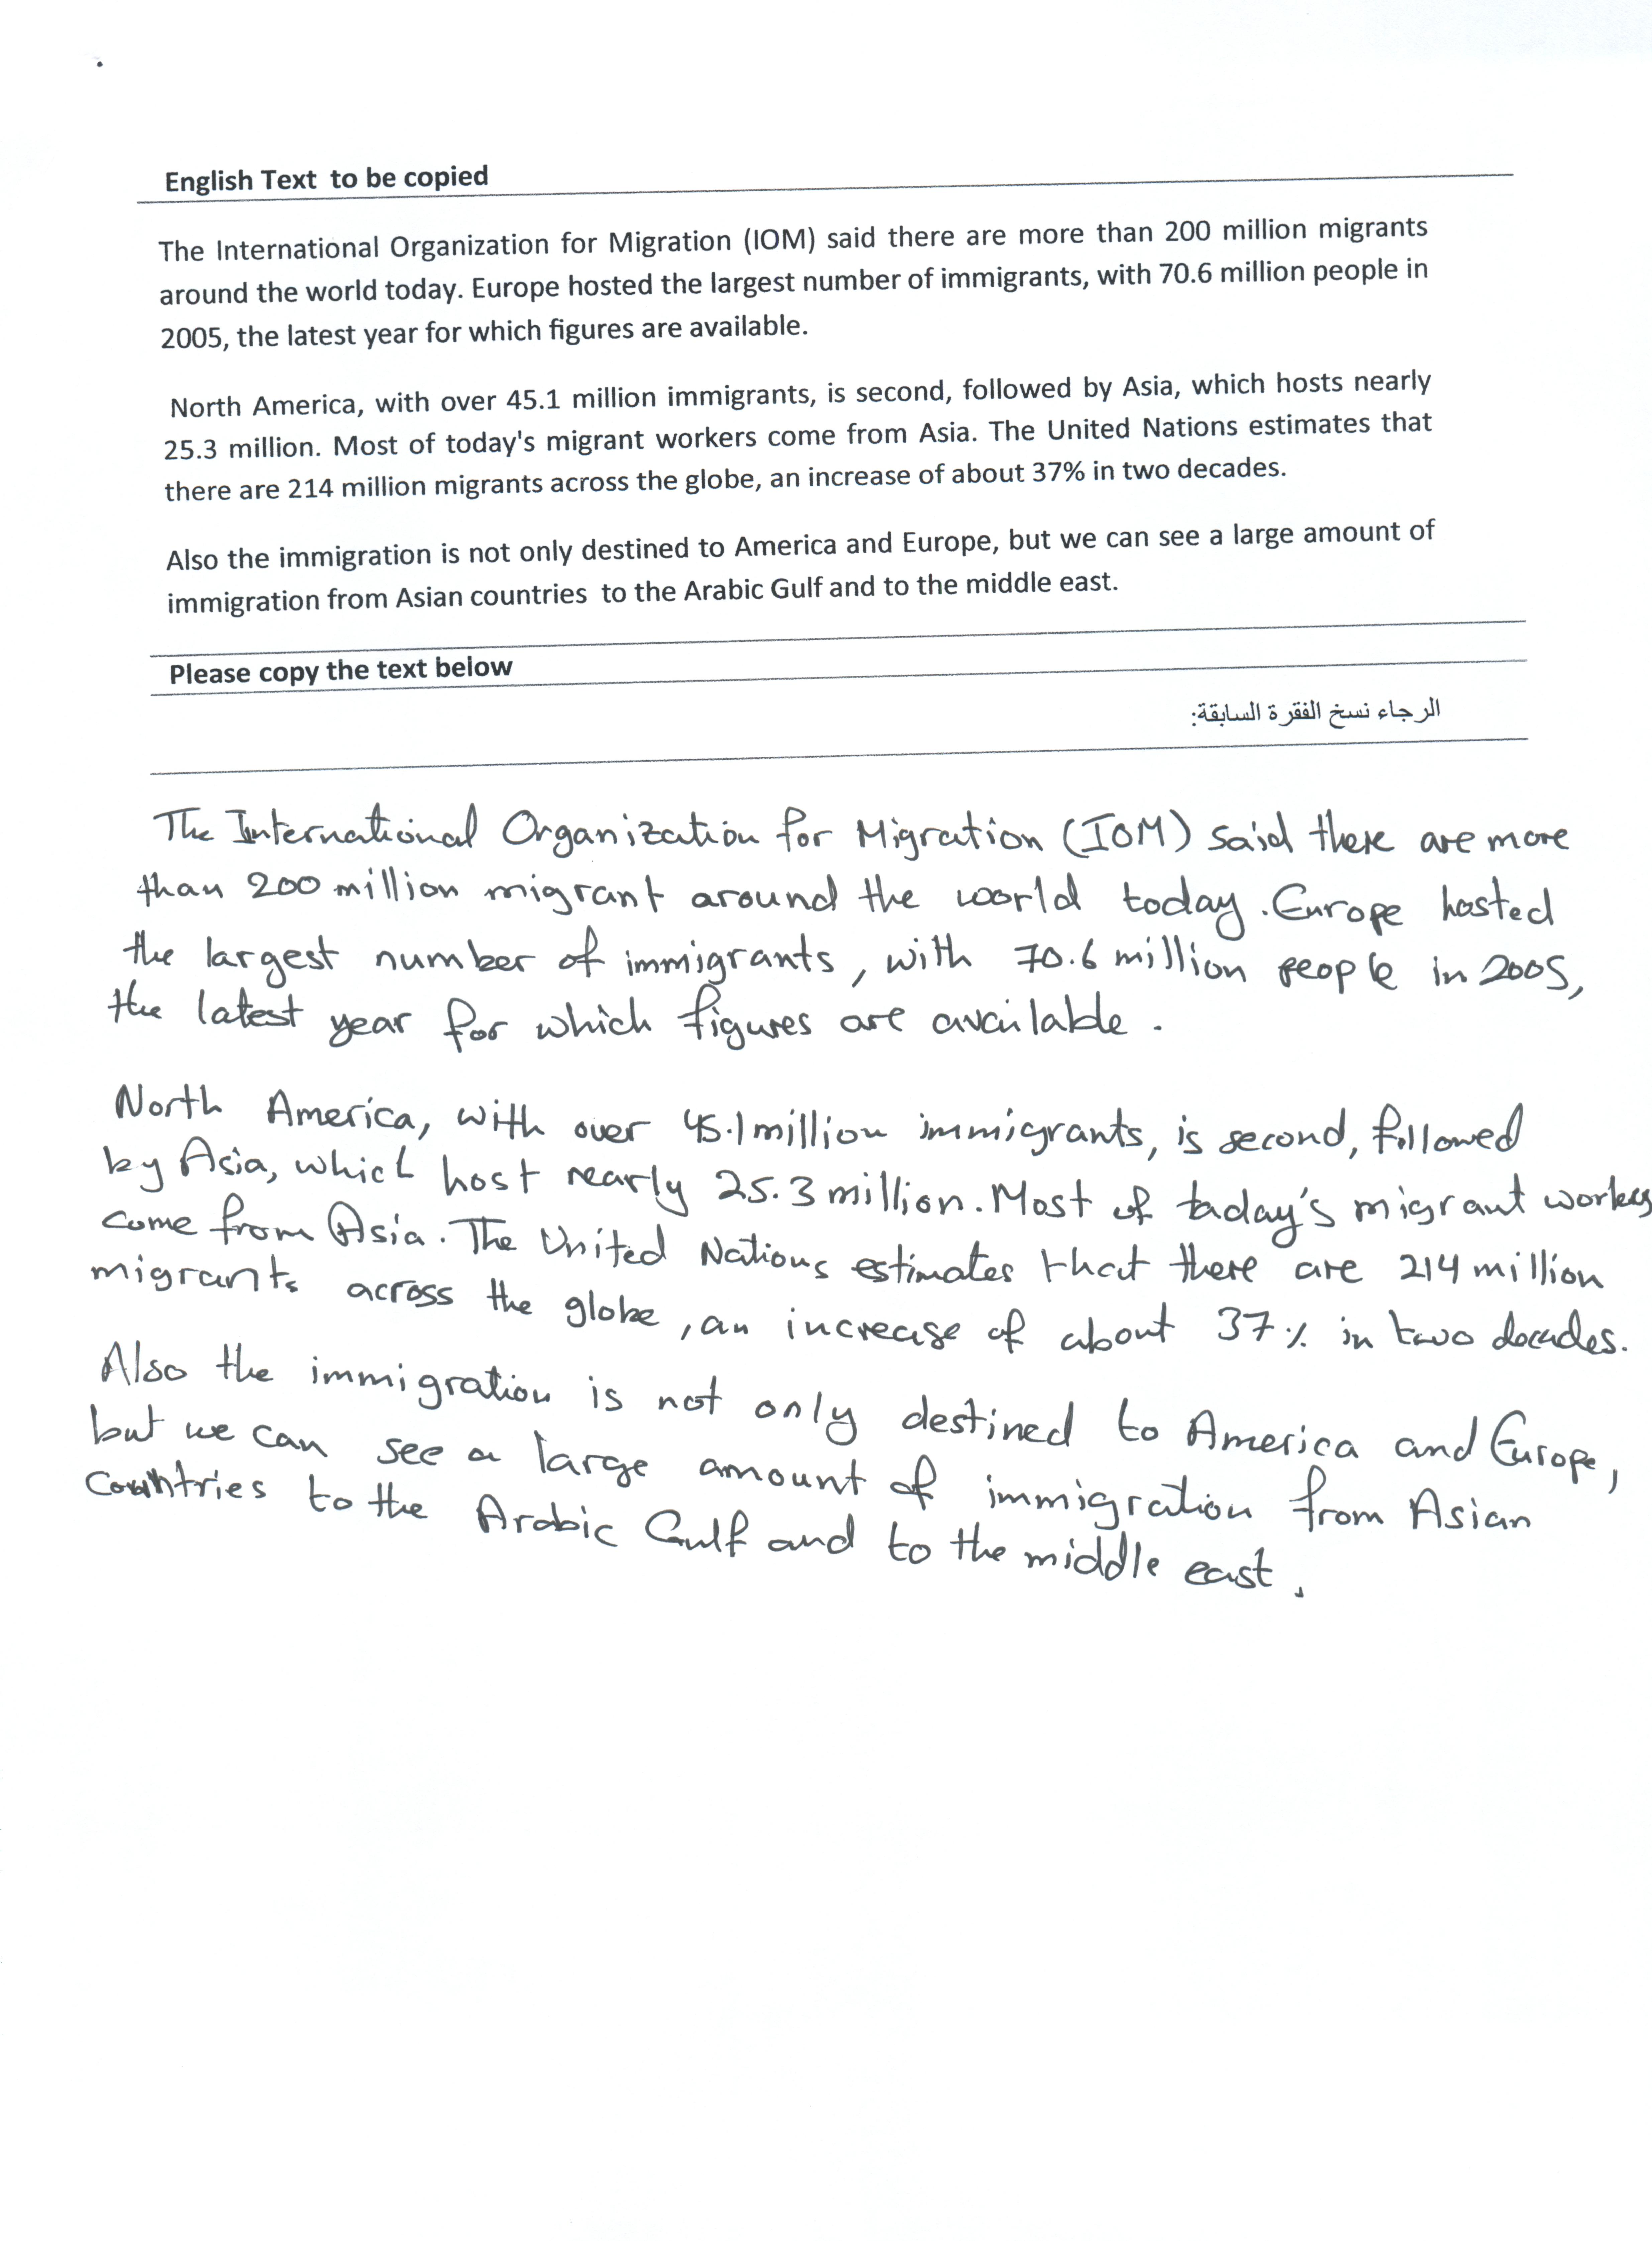 English Text to be copied
The International Organization for Migration (IOM) said there are more than 200 million migrants
around the world today. Europe hosted the largest number of immigrants, with 70.6 million people in
2005, the latest year for which figures are available.
North America, with over 45.1 million immigrants, is second, followed by Asia, which hosts nearly
25.3 million. Most of today's migrant workers come from Asia. The United Nations estimates that
there are 214 million migrants across the globe, an increase of about 37% in two decades.
Also the immigration is not only destined to America and Europe, but we can see a large amount of
immigration from Asian countries to the Arabic Gulf and to the middle east.
Please copy the text below
الرجاء نسخ الفقرة السابقة:
The International Organization for Migration (IOM) said there are more
than 200 million migrant around the world today. Europe hosted
the largest number of immigrants, with 70.6 million people in 2005,
the latest year for which figures are available.
North America, with over 45.1 million immigrants, is second, followed
by Asia, which host nearly 25.3 million. Most of today's migrant workers
come from Asia. The United Nations estimates that there are 214 million
migrants across the globe, an increase of about 37% in two decades.
Also the immigration is not only destined to America and Europe,
but we can see a large amount of immigration from Asian
countries to the Arabic Gulf and to the middle east.